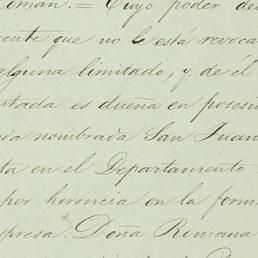 Roman. = Cuyo poder de
ente que no le está revoca
alguna limitado, y de él
tada es dueña en posesi
da nombrada San Juan
ta en el Departamento
por herencia en la form
spresa. Doña Romana